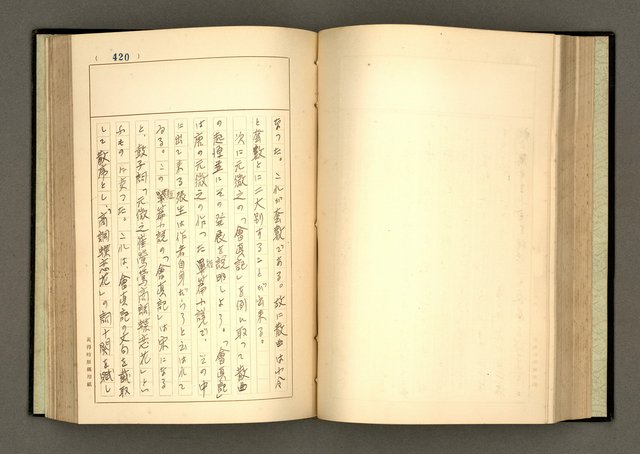 (420)
なつた。これが套數である。故に散曲は小令
と套數とに二大別することが出來る。
次に元微之の「會真記」を例に取つて散曲
の起憶並にその発展を説明しよう。「會真記」
は唐の元微之の作つた單篇小説で、その中
に出て來る張生は作者自身だらうと云はれて
ゐる。この單篇小説の「會真記」は宋になる
と、鼓子詞「元微之崔鶯鶯商調蝶恋花」とい
ふものに変つた。これは、會真記の文句を截取
して散序とし、「商調蝶恋花」の詞十闋を賦し